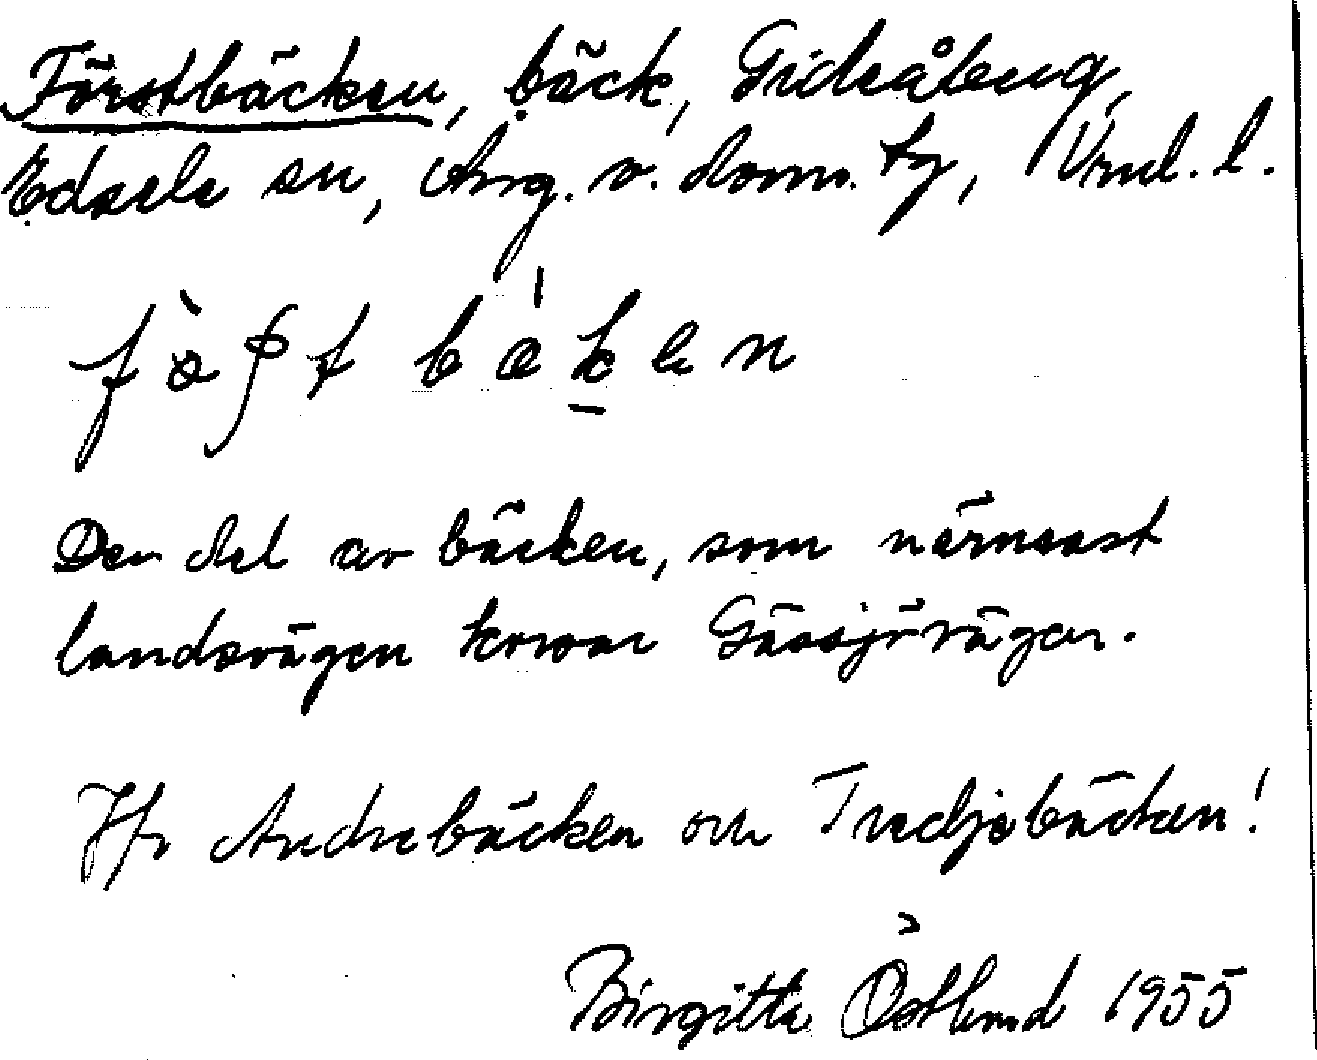 Förstbäcken, bäck, Gideåberg,
Edsele sn, Ång. v. doms. tg, Vrnl. l.
Den del av bäcken, som närmast
landsvägen korsar Gässjövägen.
Jfr Andrebäcken och Tredjebäcken!
Birgitta Östlund 1955